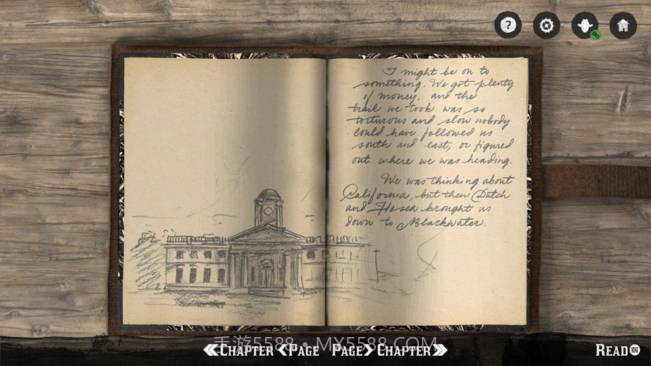 I might be on to
something. We got plenty
of money, and the
trail we took was so
torturous and slow nobody
could have followed us
south and east, or figured
out where we was heading.
We was thinking about
California, but then Dutch
and Hosea brought us
down to Blackwater.
手游5588 · MX5588.COM
CHAPTER PAGE PAGE CHAPTER READ